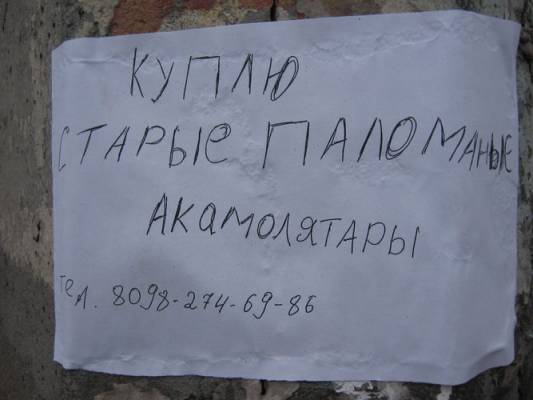 КУПЛЮ
СТАРЫЕ ПАЛОМАНЫЕ
АКАМОЛЯТАРЫ
Тел. 8098-274-69-86